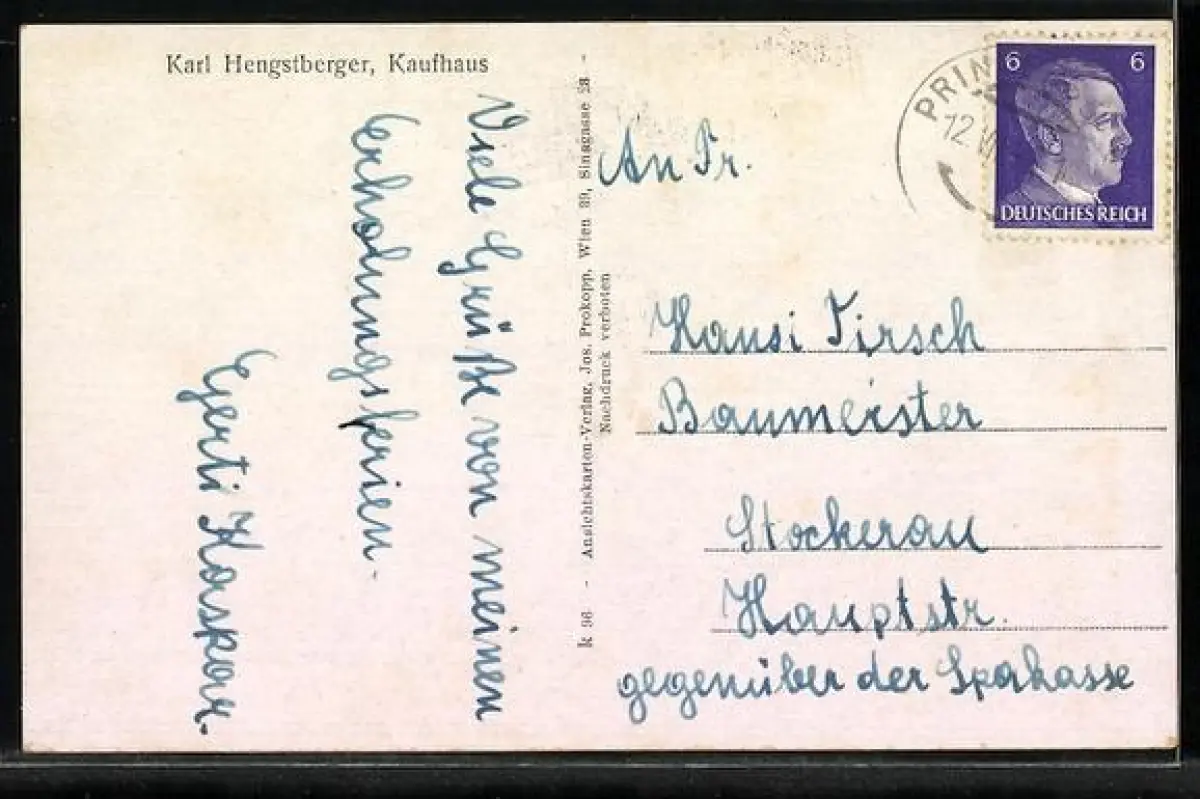 Karl Hengstberger, Kaufhaus
Viele Grüße von meinen
Erholungsferien.
Gerti Kaspar.
k 96 - Ansichtskarten-Verlag, Jos. Prokopp, Wien 89, Sinagasse 28 -
Nachdruck verboten
PRIN
12.
6 6
DEUTSCHES REICH
An Fr.
Hansi Tirsch
Baumeister
Stockerau
Hauptstr.
gegenüber der Sparkasse